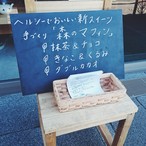 ヘルシーでおいしい新スイーツ
手づくり「森のマフィン」
抹茶＆チョコ
きなこ＆くるみ
ダブルカカオ